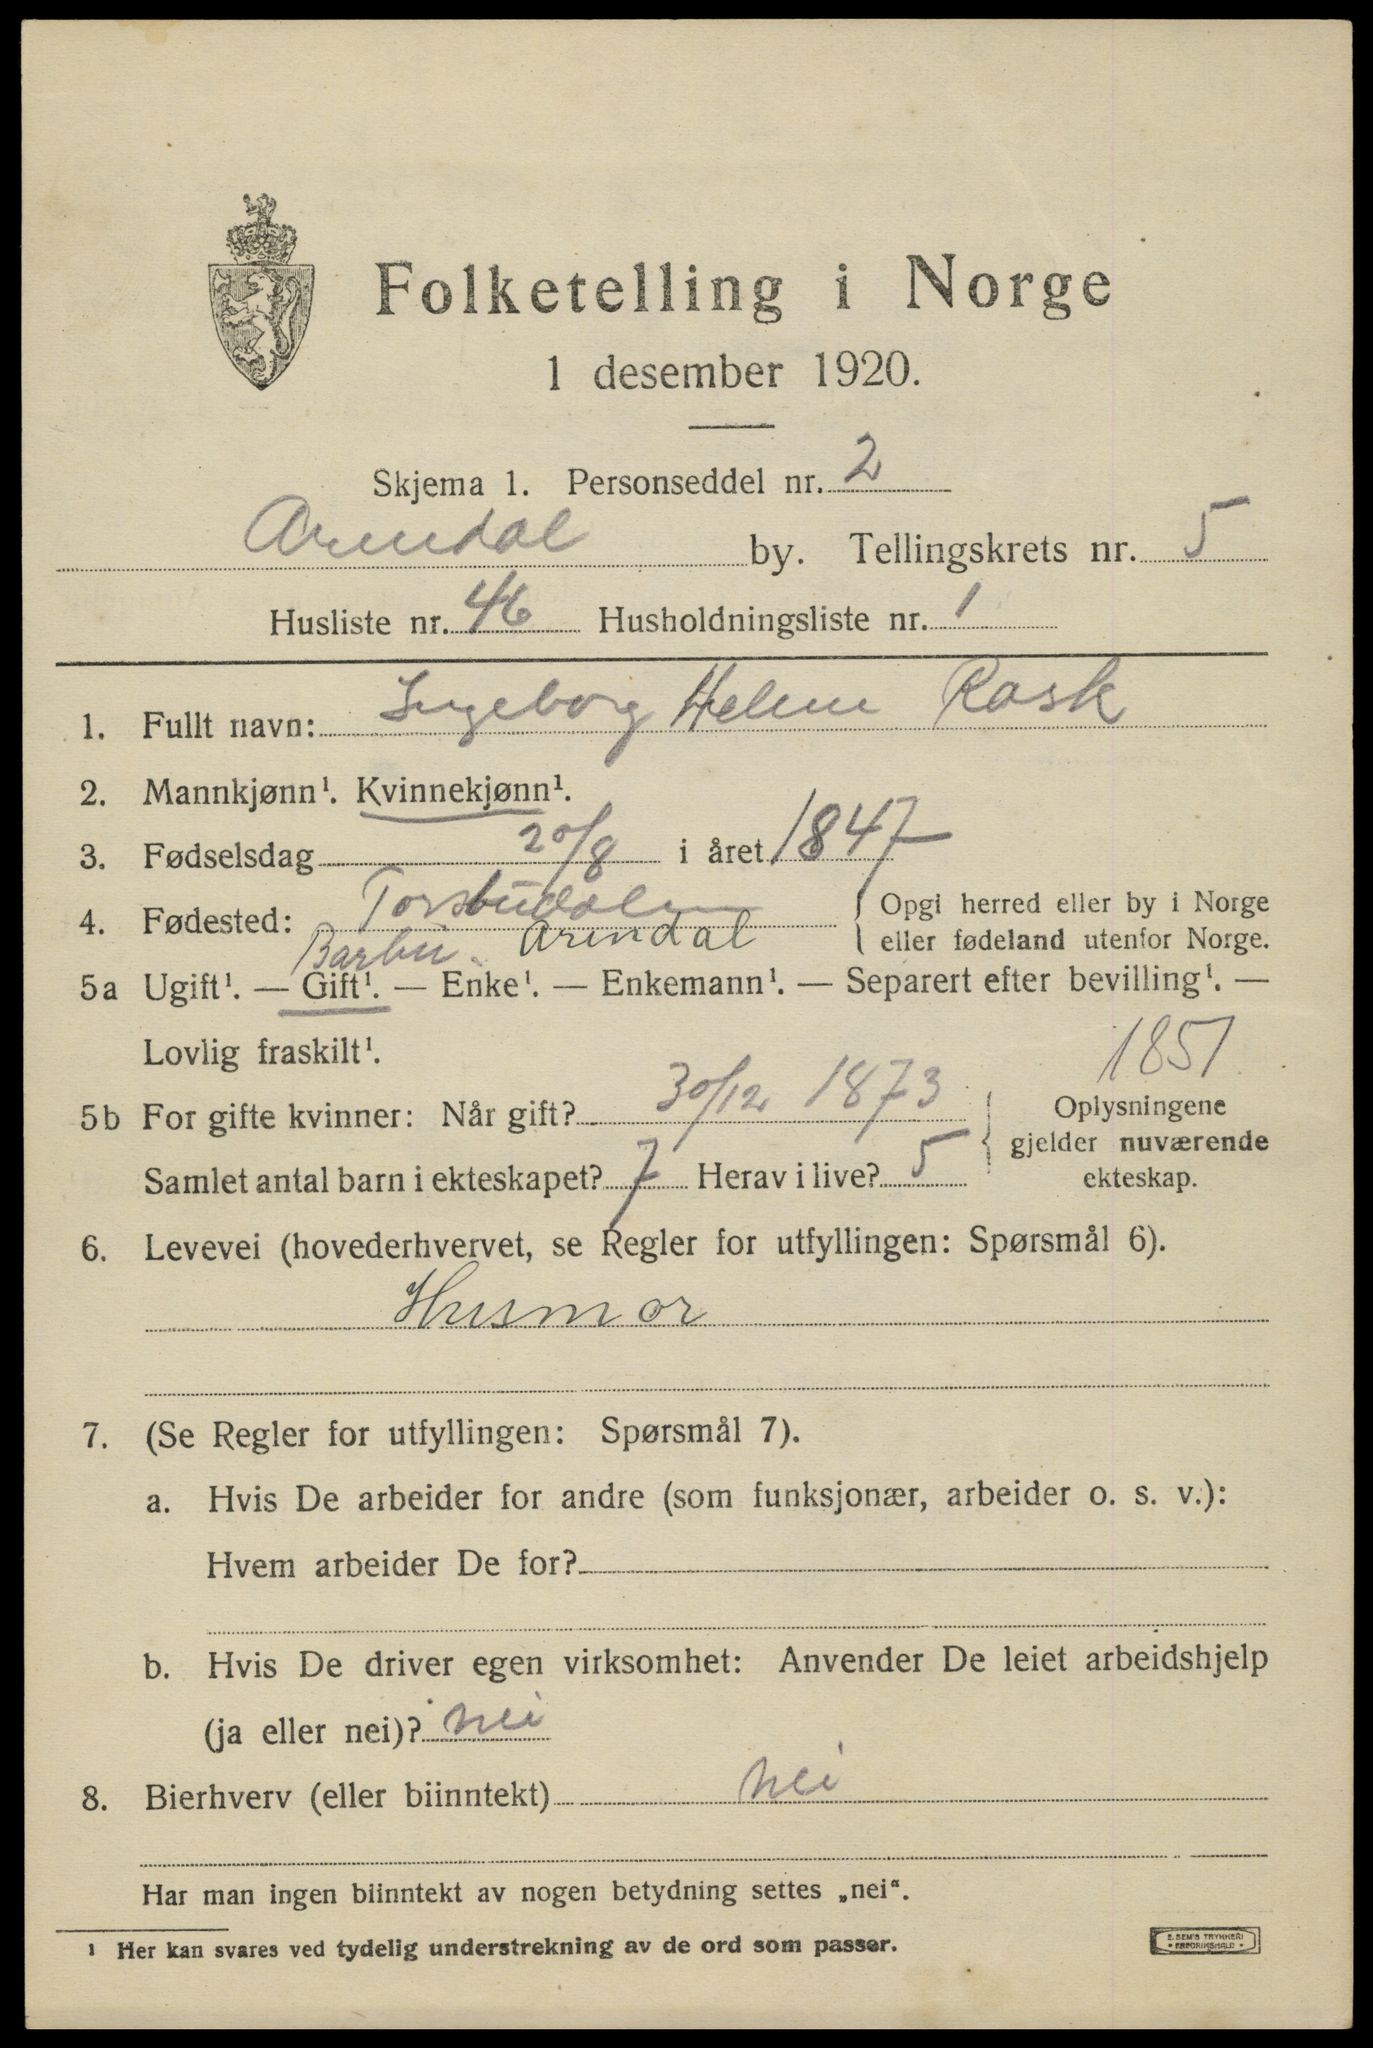 Folketelling i Norge
1 desember 1920.
Skjema 1. Personseddel nr. 2
Arendal by. Tellingskrets nr. 5
Husliste nr. 46 Husholdningsliste nr. 1
1. Fullt navn: Ingeborg Helene Rask
2. Mannkjønn¹. Kvinnekjønn¹.
3. Fødselsdag 20/8 i året 1847
4. Fødested: Torsbudalen
Barbu. Arendal
{ Opgi herred eller by i Norge
eller fødeland utenfor Norge.
5a Ugift¹. — Gift¹. — Enke¹. — Enkemann¹. — Separert efter bevilling¹. —
Lovlig fraskilt¹.
1851
5b For gifte kvinner: Når gift? 30/12 1873
Samlet antal barn i ekteskapet? 7 Herav i live? 5
{ Oplysningene
gjelder nuværende
ekteskap.
6. Levevei (hovederhvervet, se Regler for utfyllingen: Spørsmål 6).
Husmor
7. (Se Regler for utfyllingen: Spørsmål 7).
a. Hvis De arbeider for andre (som funksjonær, arbeider o. s. v.):
Hvem arbeider De for?
b. Hvis De driver egen virksomhet: Anvender De leiet arbeidshjelp
(ja eller nei)? nei
8. Bierhverv (eller biinntekt) nei
Har man ingen biinntekt av nogen betydning settes „nei".
¹ Her kan svares ved tydelig understrekning av de ord som passer.
E. SEM'S TRYKKERI
• FREDRIKSHALD •